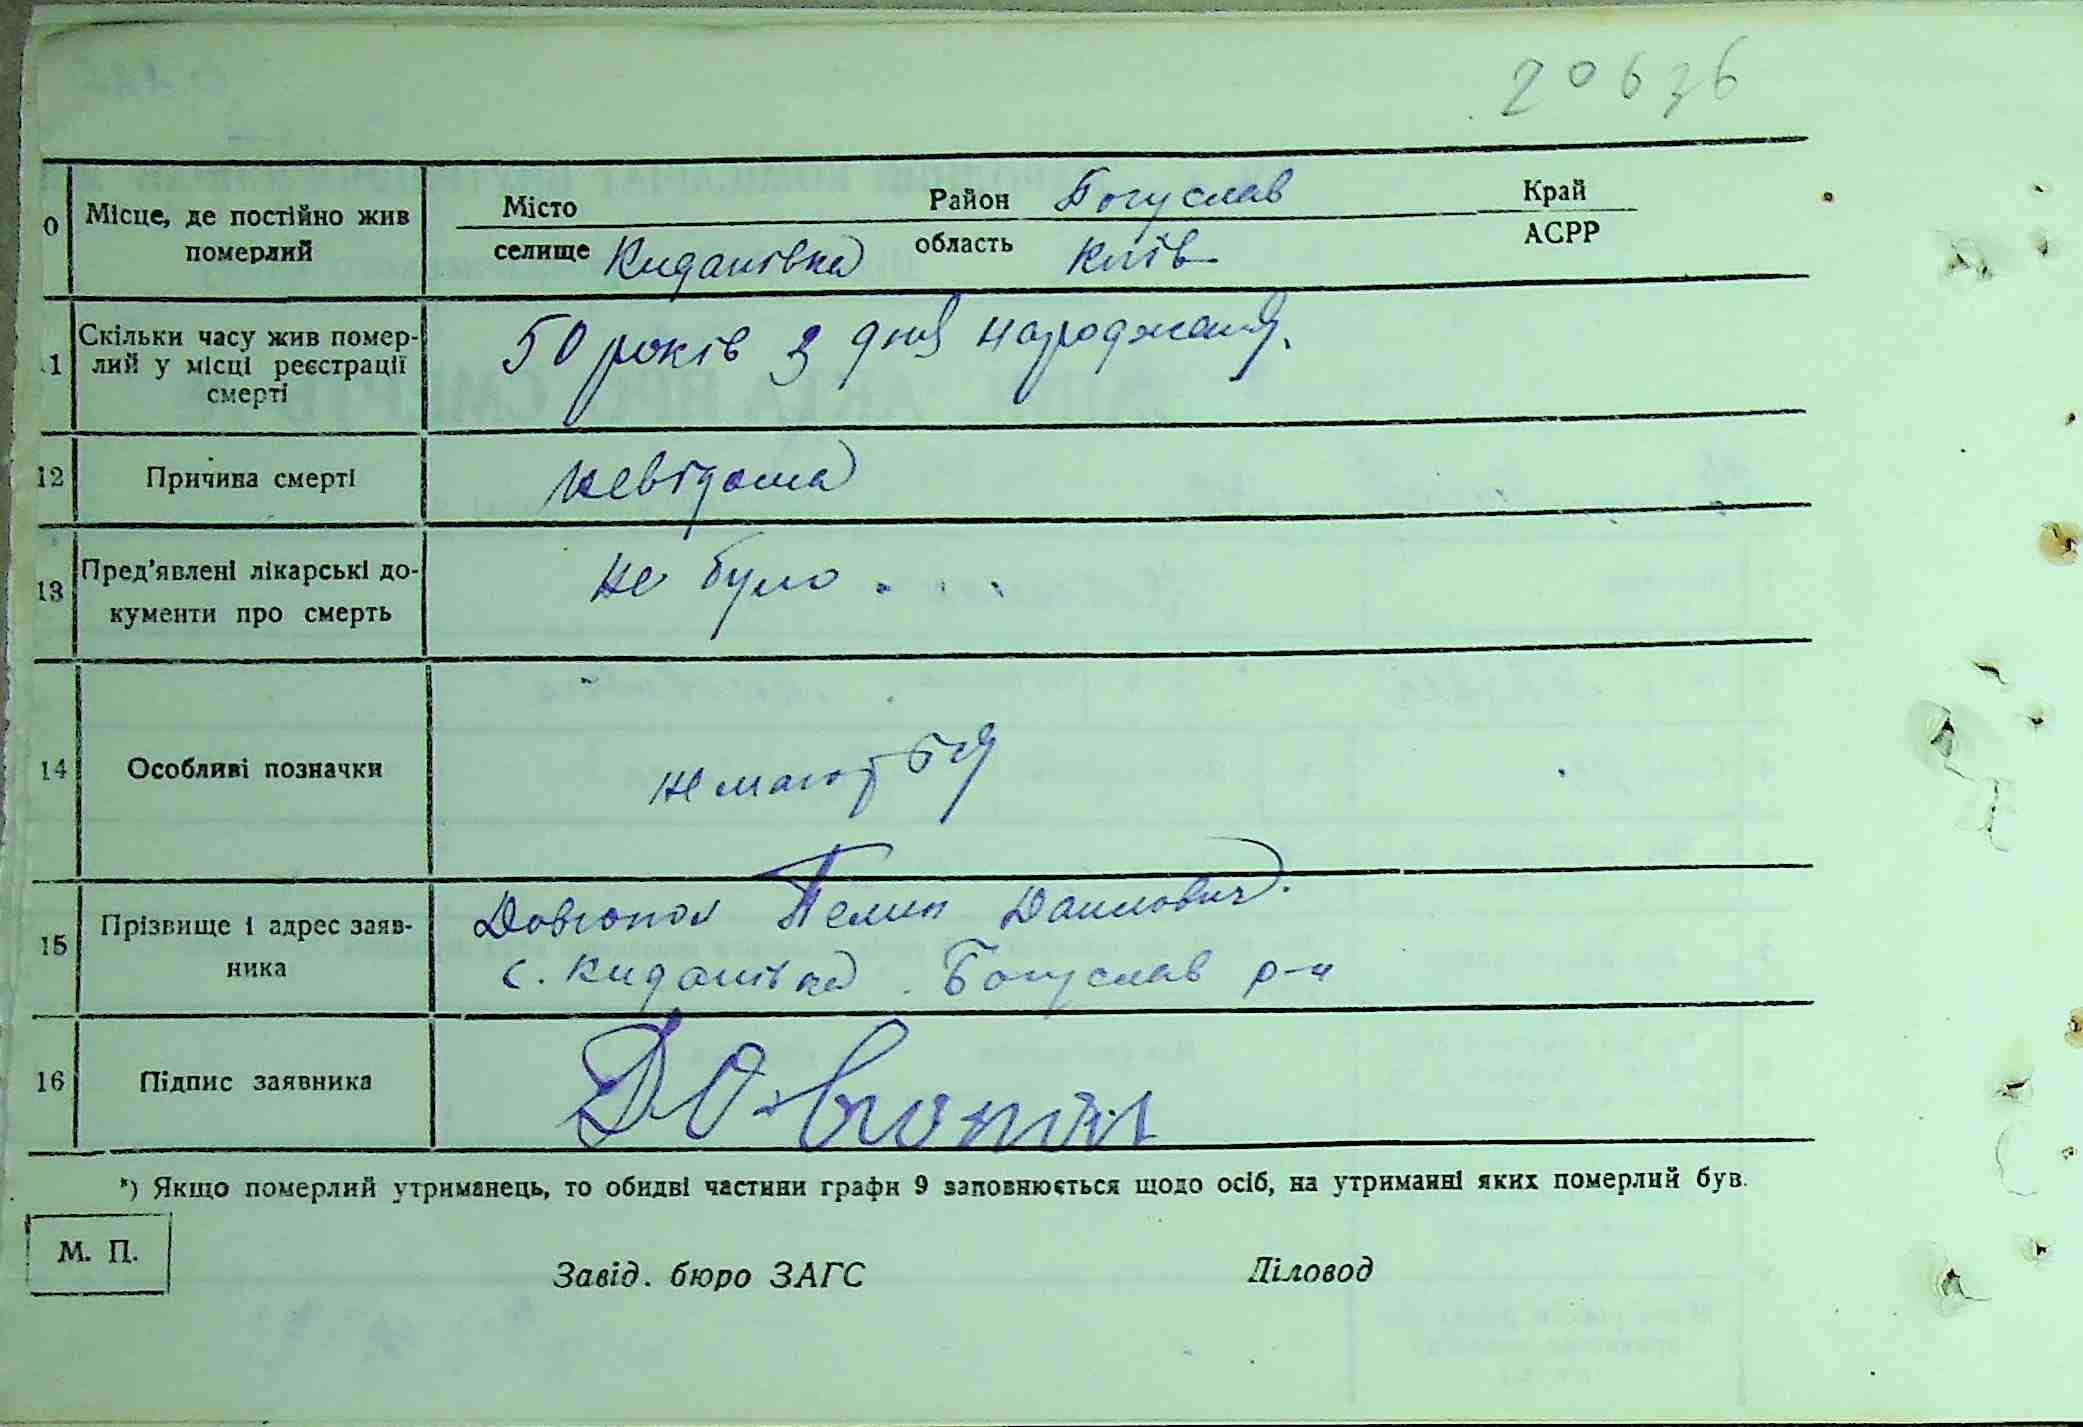 20636
0 Місце, де постійно жив померлий
Місто Район Богуслав Край
селище Киданівка область Київ АСРР
1 Скільки часу жив помер-
лий у місці реєстрації
смерті
50 років з дня народжання.
12 Причина смерті невідома
13 Пред'явлені лікарські до-
кументи про смерть
не було . . .
14 Особливі позначки
15 Прізвище і адрес заяв-
ника
Довгопол Данилович.
с. Киданівка Богуслав р-н
16 Підпис заявника Довгопол
*) Якщо померлий утриманець, то обидві частини графи 9 заповнюється щодо осіб, на утриманні яких померлий був.
М. П.
Завід. бюро ЗАГС Діловод